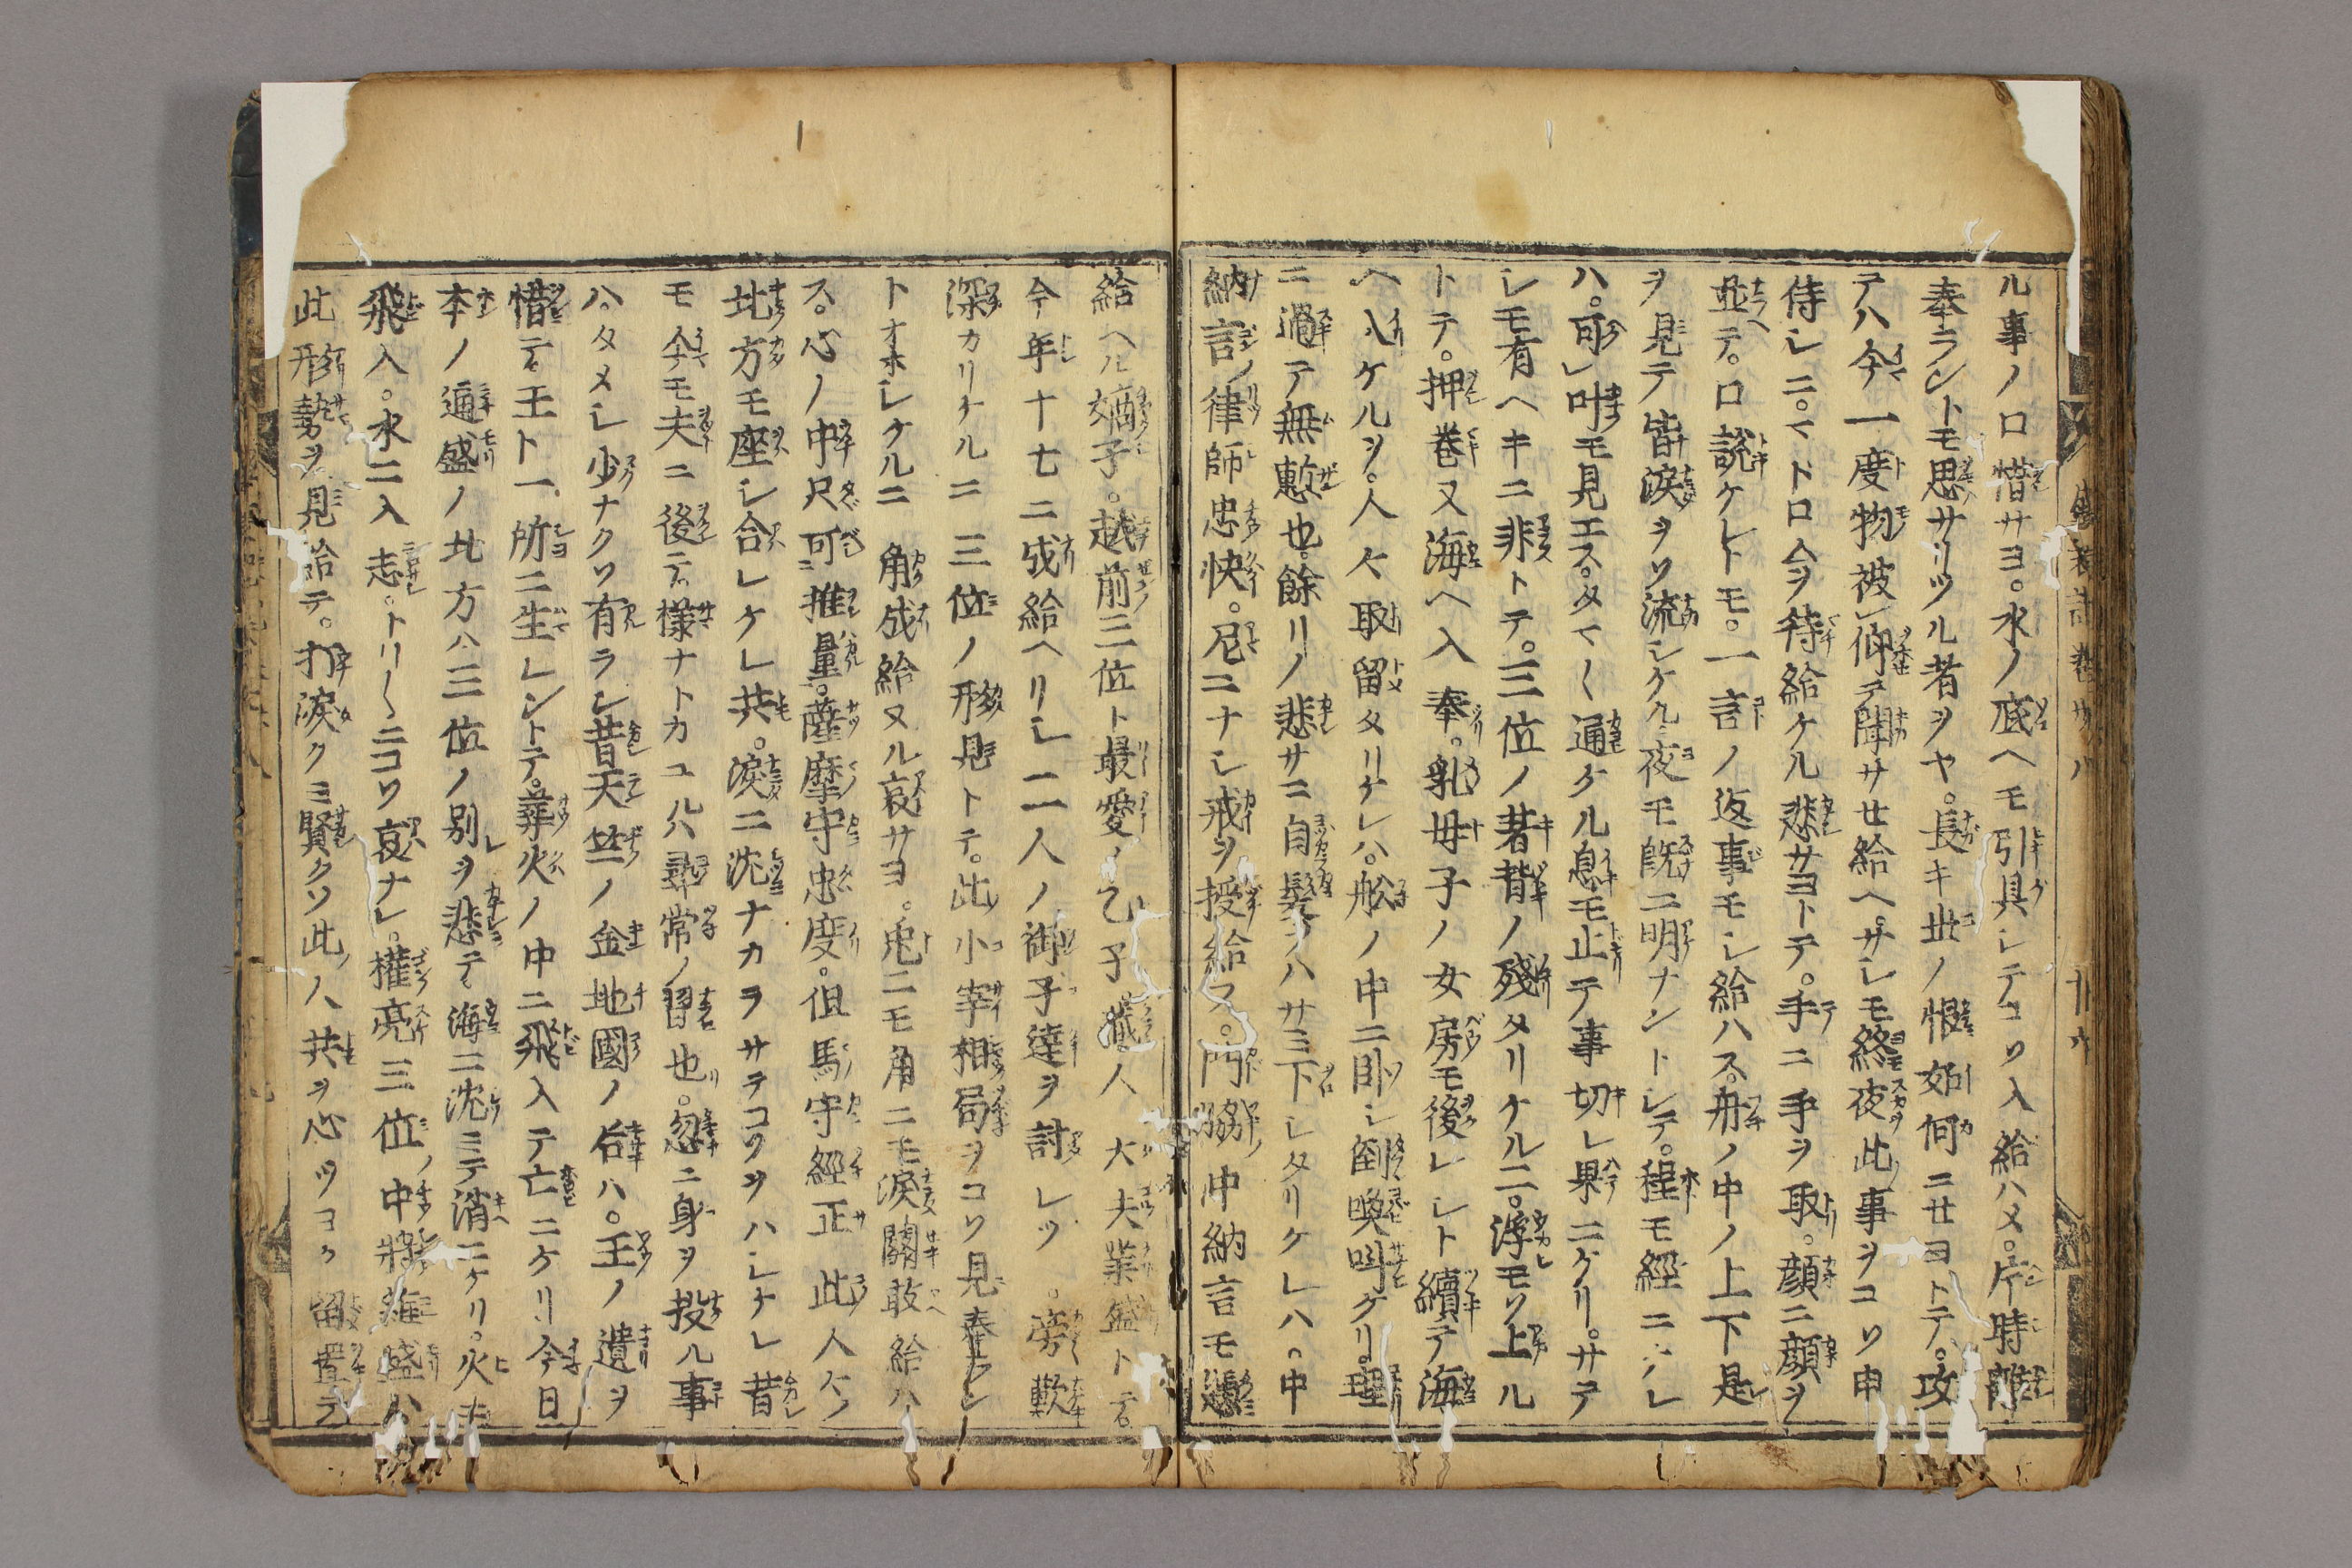 ル事ノ口惜サヨ。水ノ底ヘモ引具シテコソ入給ハメ。片時離
奉ラントモ思サリツル者ヲヤ。長キ世ノ恨如何ニせヨトテ。攻
テハ今一度物被仰テ聞サせ給ヘ。サレモ終夜此事ヲコソ申
侍シニ。マドロ合ヲ待給ケル悲サヨトテ。手ニ手ヲ取。顔ニ顔ヲ
並テ。口說ケレトモ。一言ノ返事モシ給ハス。舟ノ中ノ上下是
ヲ見テ皆淚ヲソ流シケル。夜モ既ニ明ナントレテ。程モ經ニケレ
ハ。可叶モ見エス。タマ〱通ケル息モ止テ事切レ果ニケリ。サテ
シモ有ヘキニ非トテ。三位ノ著背ノ殘タリケル二。浮モソ上ル
トテ。押卷又海ヘ入奉。乳母子ノ女房モ後レシト續テ海
ヘ入ケルヲ。人々取留タリケレハ。舩ノ中ニ卧シ倒喚叫ケリ。理
ニ過テ無慙也。餘リノ悲サニ自髮ヲハサミ下シタリケレハ。中
納言ノ律師忠快。尼ニナシ戒ヲ授給フ。門脇中納言モ憑
給ヘル嫡子。越前三位ト最愛ノ乙子藏人大夫業盛トテ
今年十七ニ成給ヘリシ二人ノ御子達ヲ討レツ。旁歎
深カリケルニ三位ノ形見トテ。此小宰相局ヲコソ見奉ラン
トオホシケルニ角成給ヌル哀サヨ。兎ニモ角ニモ淚關敢給ハ
ス。心ノ中尺可推量。薩摩守忠度。但馬守經正此人々ノ
北方モ座シ合レケレ共。淚ニ沈ナカラサテコソヲハシケレ昔
モ今モ夫ニ後テ。樣ナトカユルハ尋常ノ習也。忽ニ身ヲ投ル事
ハ。タメシ少ナクソ有ラン昔天竺ノ金地國ノ后ハ。王ノ遺ヲ
惜テ。王ト一所ニ生レントテ。葬火ノ中ニ飛入テ亡ニケリ今日
本ノ通盛ノ北方ハ三位ノ別ヲ悲テ海ニ沈ミテ消ニケリ。火ニ
飛入。水ニ入志。トリ〱ニコソ哀ナレ。權亮三位ノ中將維盛ハ
此形勢ヲ見給テ。打淚クミ賢クソ此人共ヲ心ツヨク留置テ